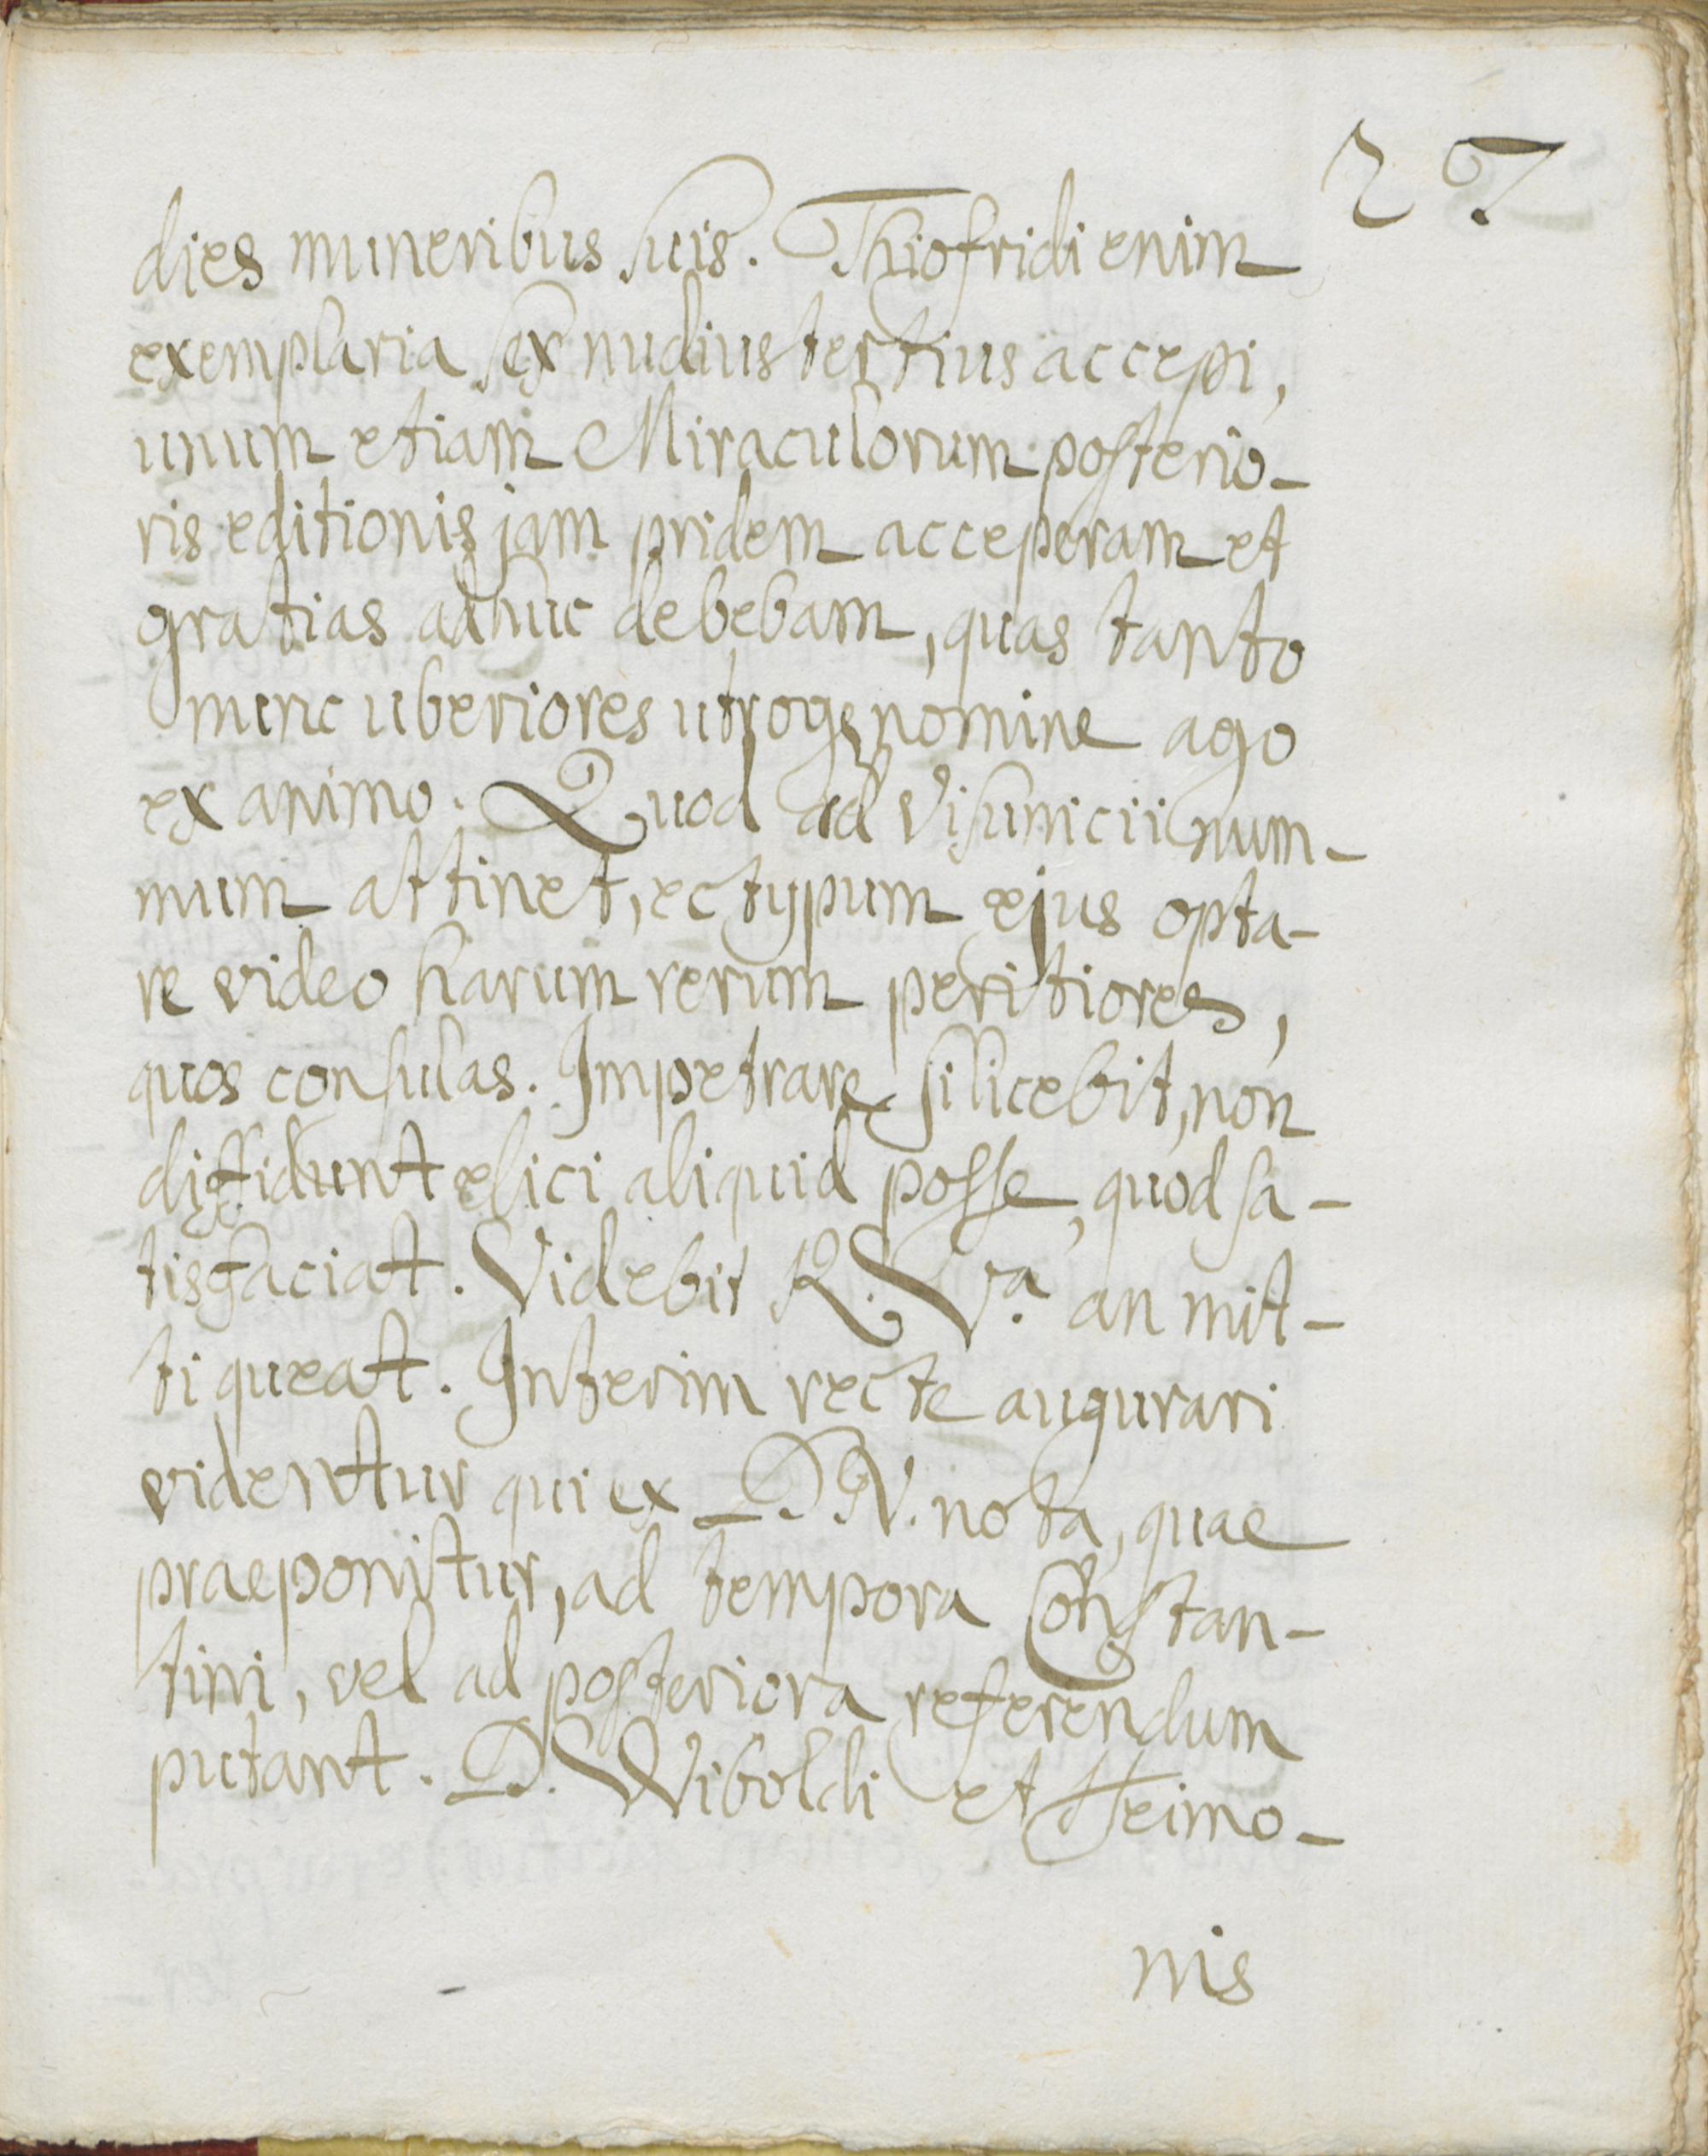 27
dies muneribus suis. Thiofridi enim
exemplaria sex nudiustertius accepi,
unum etiam Miraculorum posterio-
ris editionis jam pridem acceperam et
gratias adhuc debebam, quas tanto
nunc uberiores utroqɜ nomine ago
ex animo. Quod ad Visunicii num-
mum attinet, ectypum ejus opta-
re video harum rerum peritiores,
quos consulas. Impetrare si licebit, non
diffidunt elici aliquid posse, quod sa-
tisfaciat. Videbit R. Vra. an mit-
ti queat. Interim recte augurari
videntur qui ex D N. nota, quae
praeponitur, ad tempora Constan-
tini, vel ad posteriora referendum
putant. D. Wiboldi et Heimo-
nis